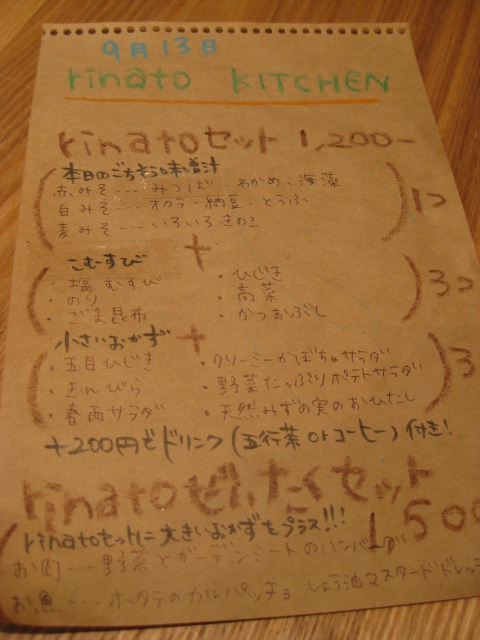 9月13日
rinato KITCHEN
rinatoセット 1,200-
本日のごちそうお味噌汁
赤みそ---みつば・わかめ・海藻
白みそ---オクラ・納豆・とうふ
麦みそ---いろいろきのこ
1つ
+
こむすび
・塩むすび
・のり
・ごま昆布
・ひじき
・高菜
・かつおぶし
3つ
+
小さいおかず
・五目ひじき
・きんぴら
・春雨サラダ
・クリーミーかぼちゃサラダ
・野菜たっぷりポテトサラダ
・天然みずの実のおひたし
3
+200円でドリンク(五行茶orコーヒー)付き!
rinatoぜいたくセット
1500
rinatoセットに大きいおかずをプラス!!!
お肉---野菜とガーデンミートのハンバーグ
お魚---ホタテのカルパッチョ しょう油マスタードドレッ